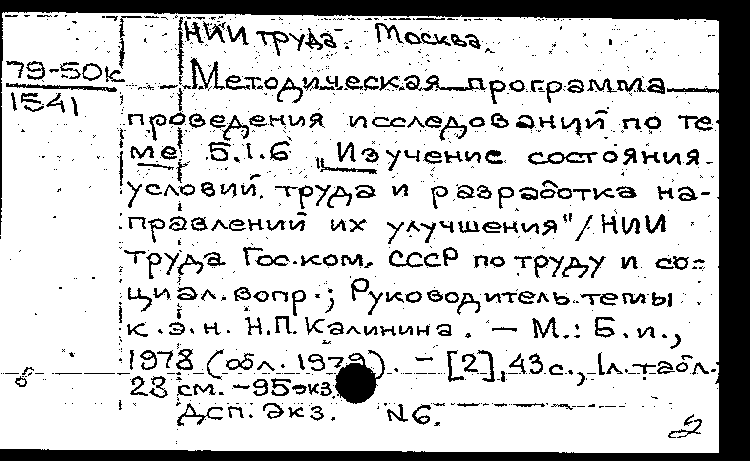 НИИ труда. Москва.
79-50к
1541
Методическая программа
проведения исследований по те
ме 5.1.6 „Изучение состояния
условий труда и разработка на-
правлений их улучшения"/НИИ
труда Гос.ком. СССР по труду и со-
циал.вопр.; Руководитель темы
к.э.н. Н.П.Калинина. — М.: Б.и.,
1978 (обл.1979). — [2], 43с., 1л.табл.;
28 см. -95экз.
Дсп. Экз. N6.
2